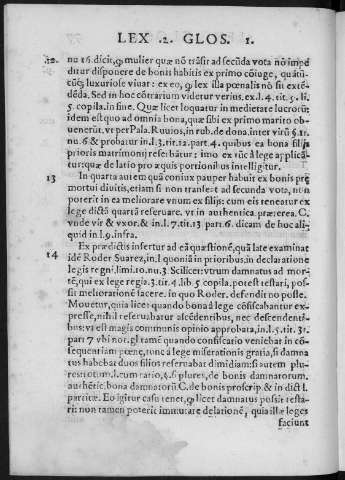 LEX .2. GLOS. 1.
12. nu 16. dicit, ꝙ mulier quæ nō trāsit ad secūda vota nō impe
ditur disponere de bonis habitis ex primo cōiuge, quātū-
cūꝗ luxuriose viuat: ex eo, ꝙ lex illa pœnalis nō sit extē-
dēda. Sed in hoc cōtrarium videtur verius, ex.l.4. tit.5. li.
5. copila. in fine. Quæ licet loquatur in medietate lucrorū;
idem est quo ad omnia bona, quæ sibi ex primo marito ob-
uenerūt. vt per Pala. Ruuios, in rub. de dona. inter virū §. 11.
nu.6 & probatur in.l.3. tit.12. part.4. quibus ea bona filijs
prioris matrimonij reserbātur: imo ex tūc à lege applicā-
tur: quæ delatio pro æquis portionibus intelligitur.
13 In quarta autem quā coniux pauper habuit ex bonis præ
mortui diuitis, etiam si non transeat ad secunda vota, non
poterit in ea meliorare vnum ex filijs: cum eis teneatur ex
lege dictā quartā reseruare. vt in authentica. præterea. C.
vnde vir & vxor. & in.l.7. tit.13 part.6. dicam de hoc ali-
quid in.l.9. infra.
14 Ex prædictis insertur ad eā quæstionē, quā late examinat
idē Roder Suarez, in.l. quoniā in prioribus, in declaratione
legis regni, limi.10. nu.3 Scilicet: vtrum damnatus ad mor-
tē, qui ex lege regia.3. tit.4. lib 5 copila. potest testari, pos-
sit meliorationē facere. in quo Roder. defendit no posse.
Mouetur, quia licet quando bona à lege cōfiscabantur ex-
presse, nihil reseruabatur ascēdentibus, nec descendenti-
bus: vt est magis communis opinio approbata, in.l.5. tit. 31.
part 7 vbi not. gl tamē quando confiscatio veniebat in cō-
sequentiam pœnę, tunc à lege miserationis gratia, si damna
tus habebat duos filios reseruabat dimidiam: si autem plu-
res totum, l. cum ratio, §. si plures, de bonis damnatorum.
authētic. bona damnatorū C. de bonis proscrip. & in dict l.
partitæ. Eo igitur casu tenet, ꝙ licet damnatus possit testa-
ri: non tamen poterit immutare delationē, quia illæ leges
faciunt